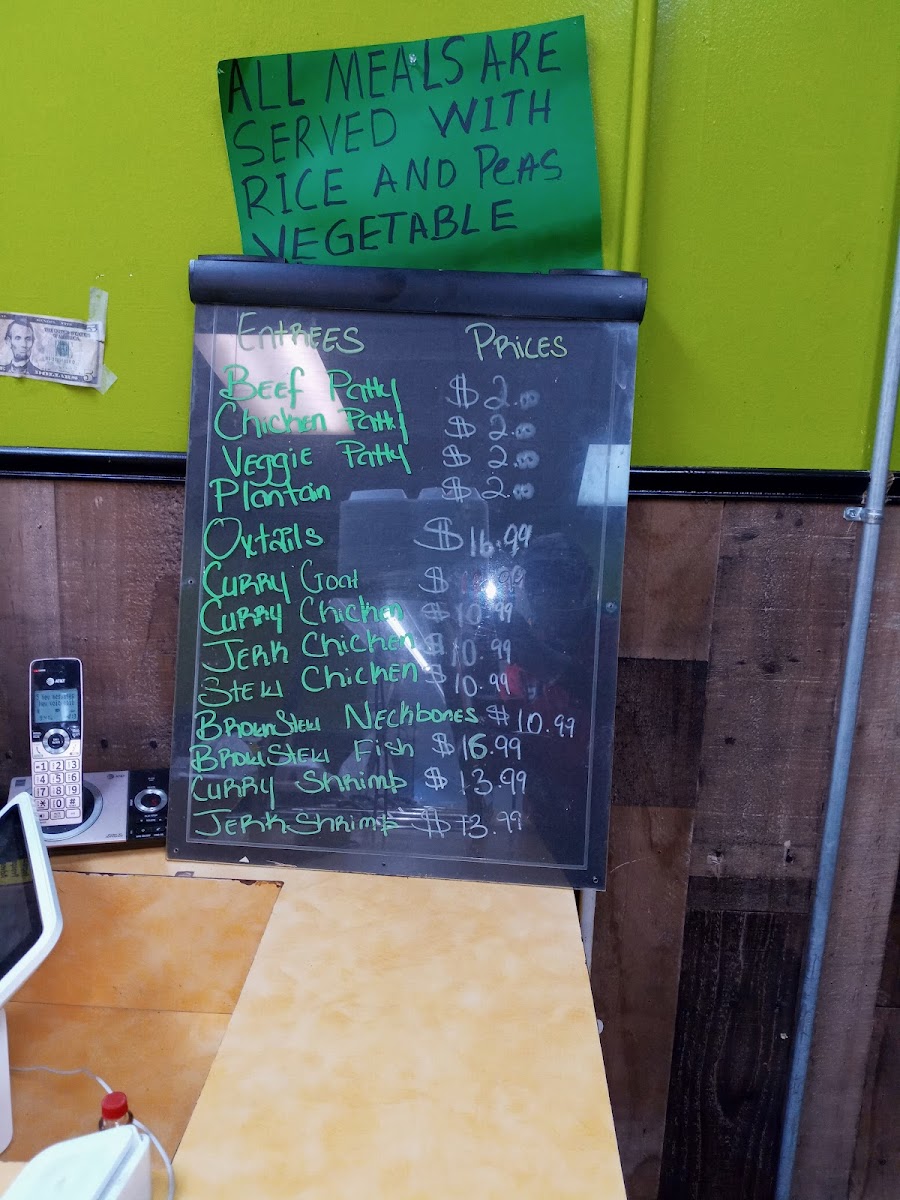 ALL MEALS ARE
SERVED WITH
RICE AND PEAS
VEGETABLE
ENTREES PRICES
BEEF Patty $2.
Chicken Patty $2.
Veggie Patty $2.
Plantain $2.
Oxtails $16.99
CURRY Goat $
CURRY Chicken $10.99
JERK Chicken $10.99
STEW Chicken $10.99
BROWN STEW NECKBONES $10.99
BROWN STEW Fish $16.99
CURRY SHRIMP $13.99
JERK SHRIMP $13.99
AT&T